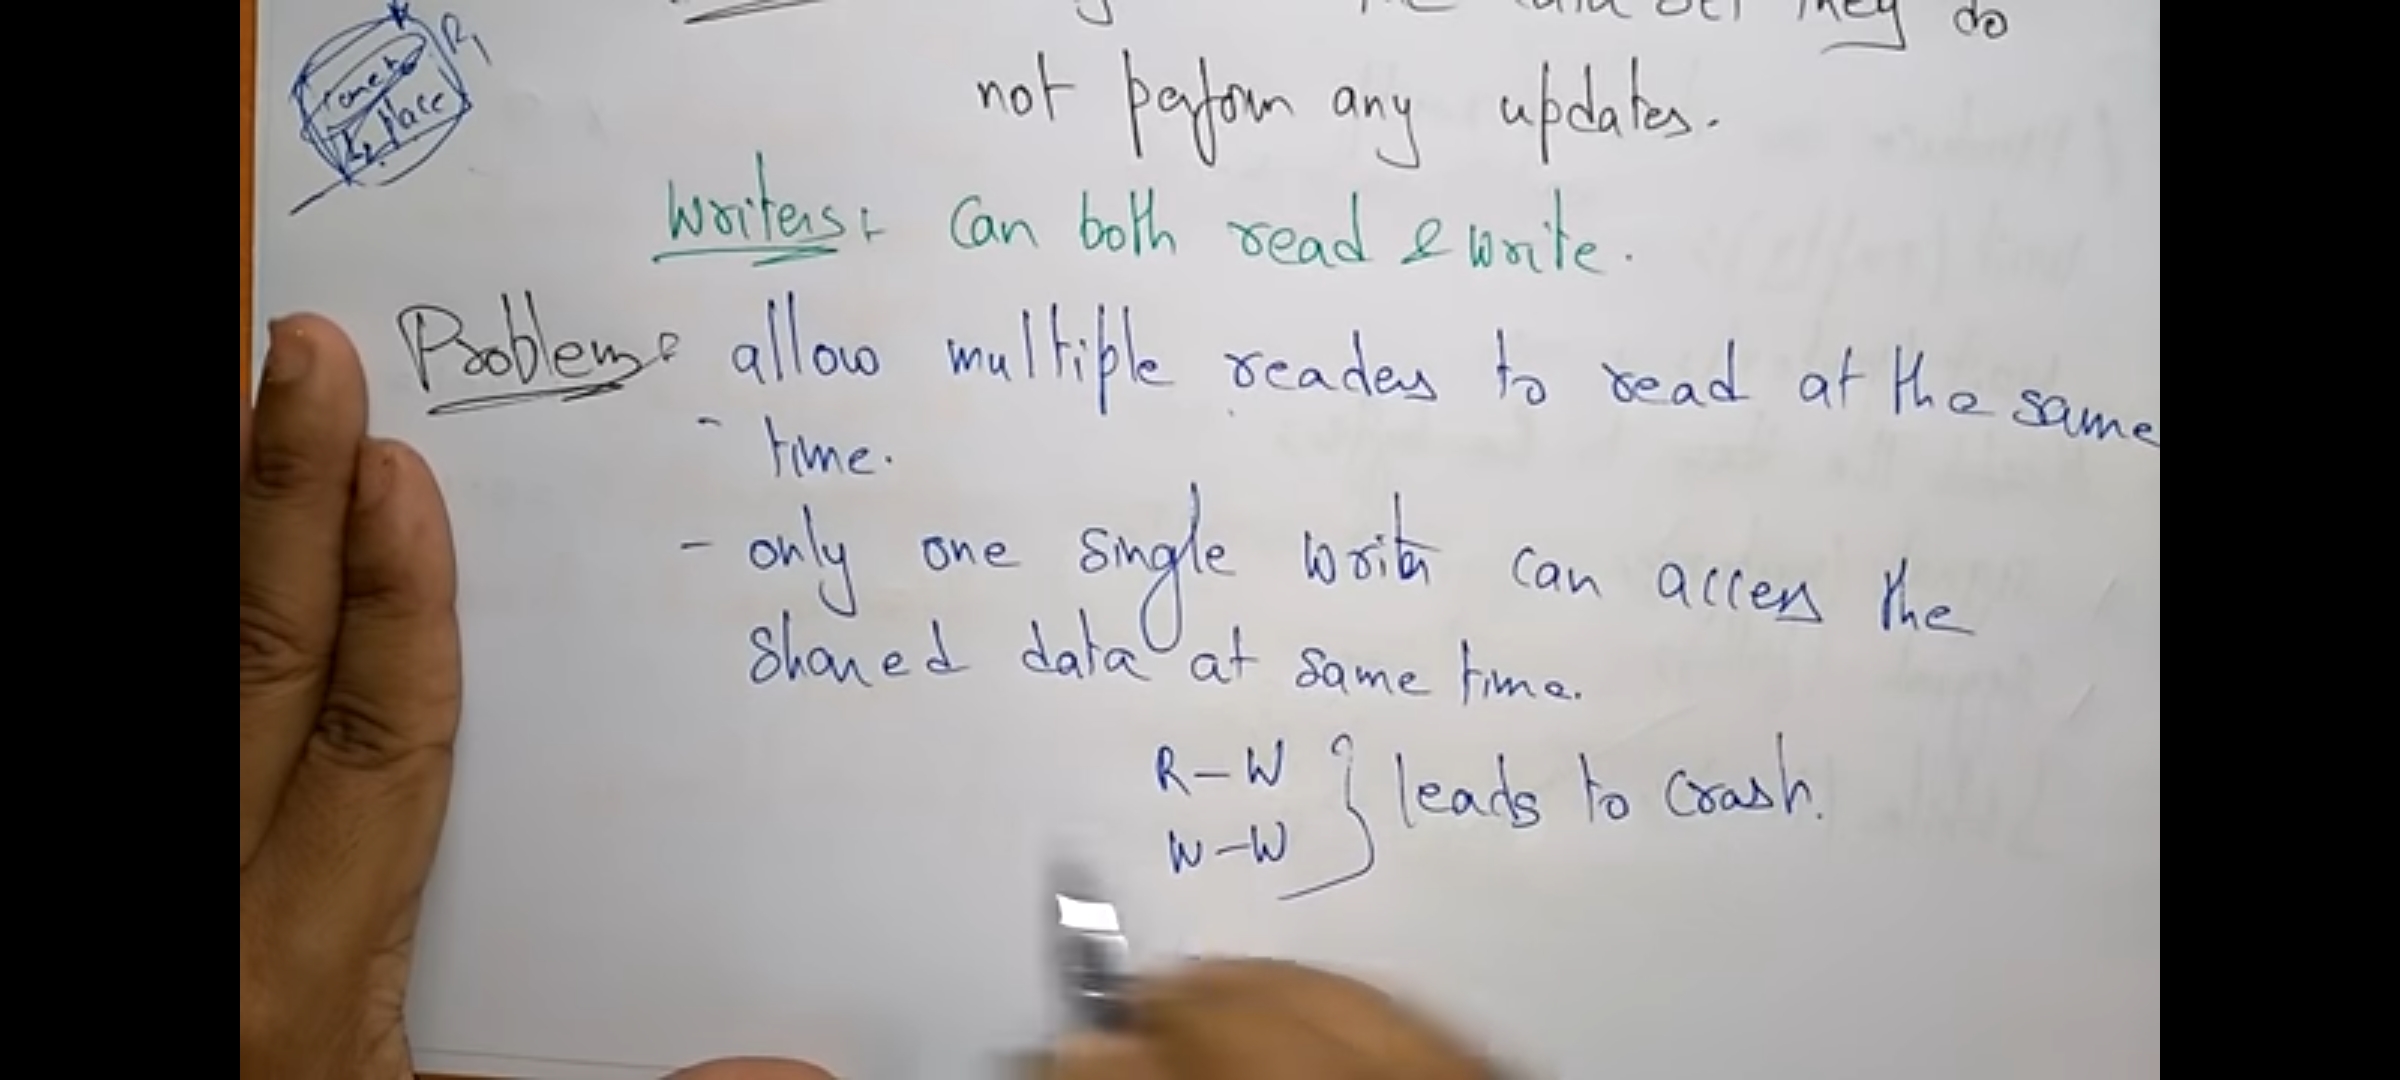 they do
not perform any updates.
R1
place
Writers:- Can both read & write.
Problem: allow multiple readers to read at the same
- time.
- only one single writer can access the
shared data at same time.
R-W
W-W } leads to crash.